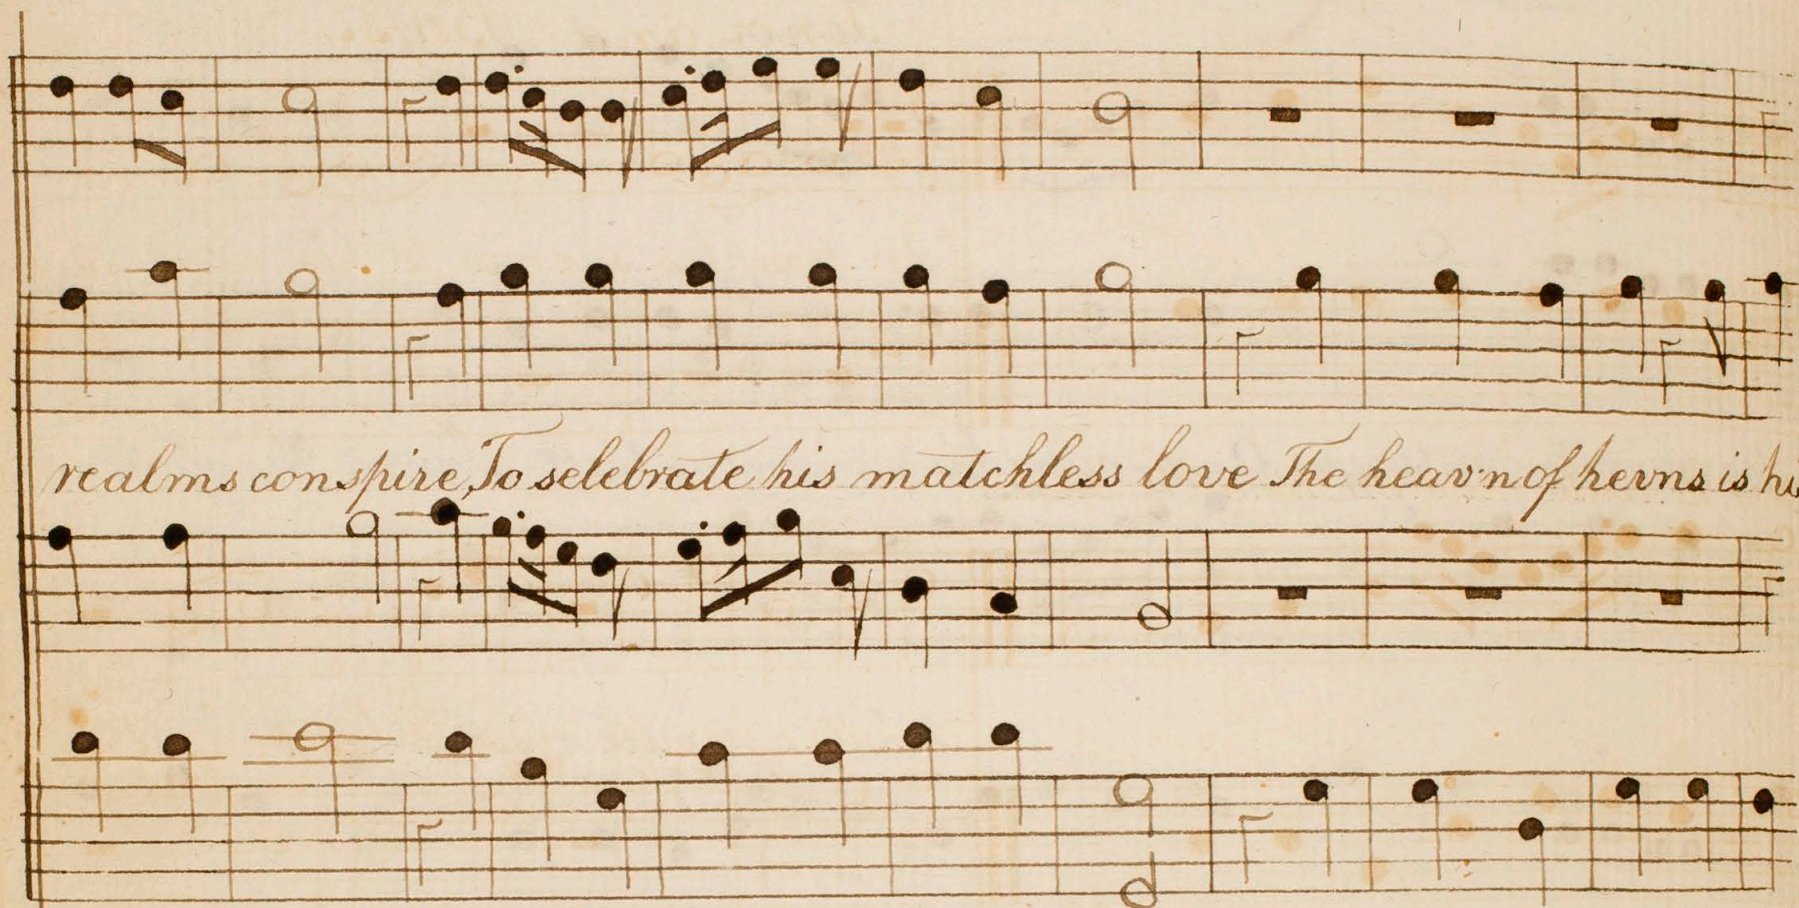 realms conspire, To selebrate his matchless love The heav'n of hevns is his